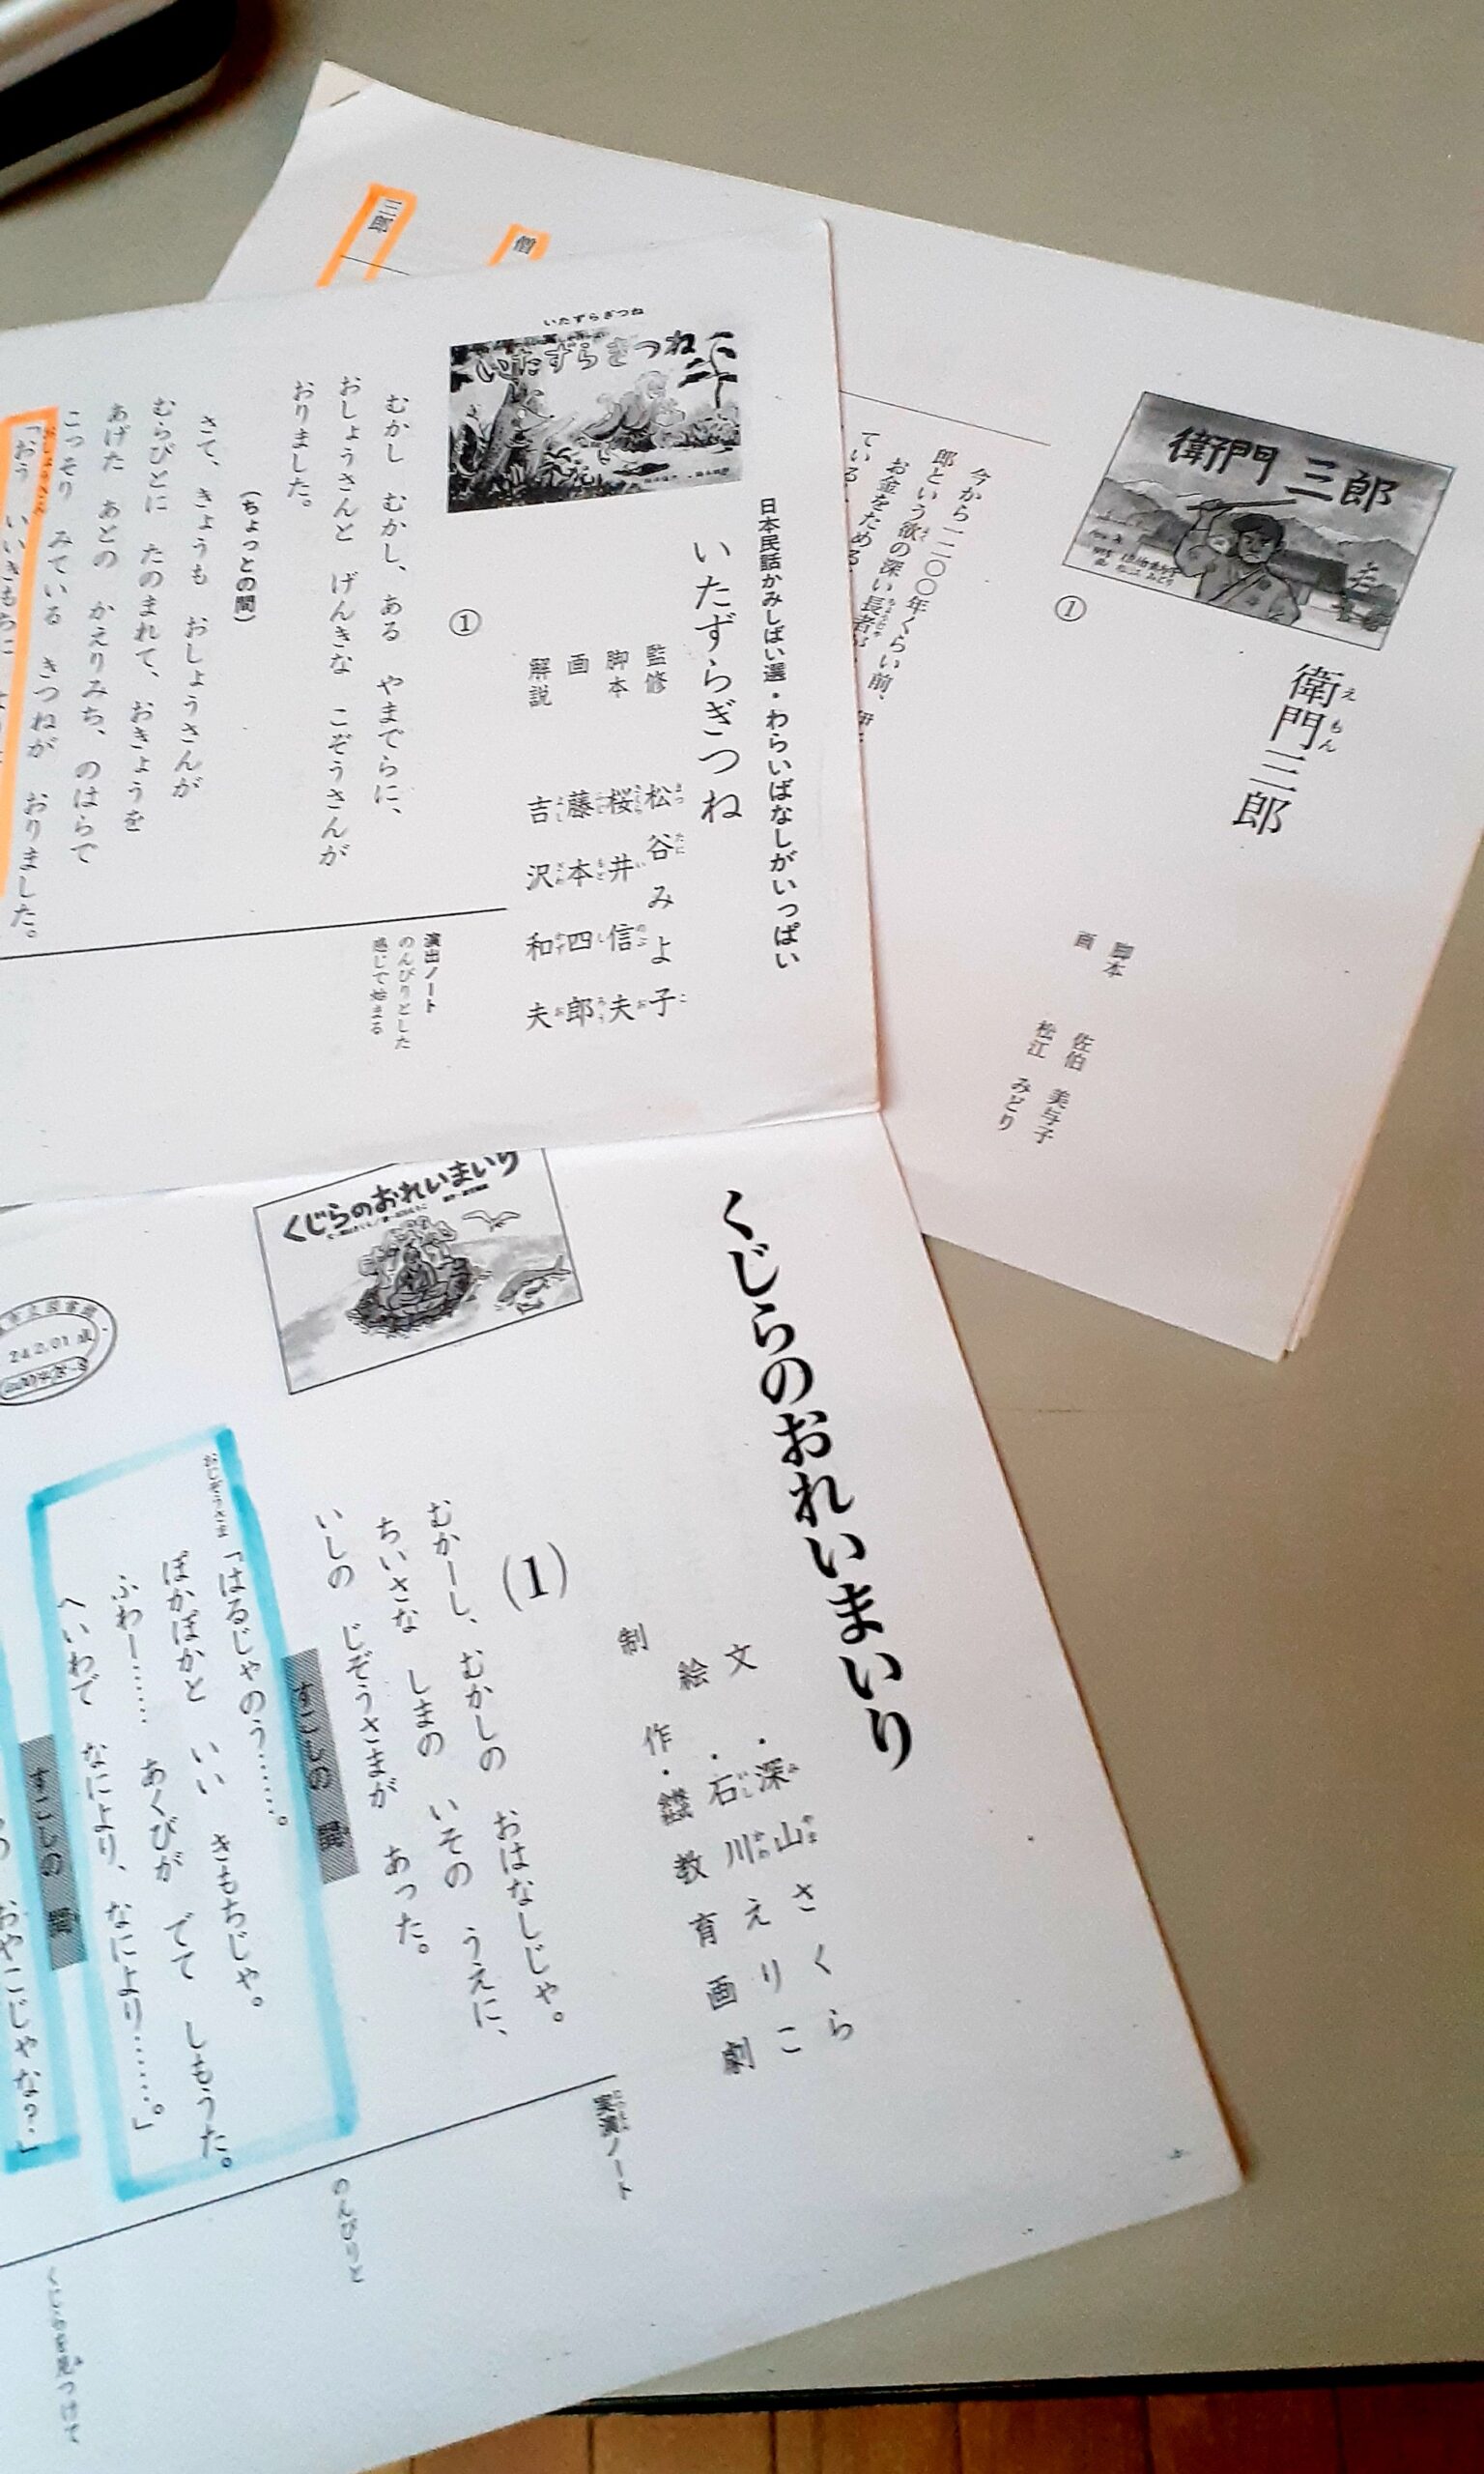 三郎
僧
衛門三郎
衛門三郎
えもん
脚本 佐伯 美与子
画 松江 みどり
①
今から一二〇〇年くらい前、
郎という欲の深い長者が
お金をためる
ている
いたずらぎつね
いたずらぎつね
日本民話かみしばい選・わらいばなしがいっぱい
いたずらぎつね
監修 松谷みよ子
脚本 桜井信夫
画 藤本四郎
解説 吉沢和夫
①
むかし むかし、ある やまでらに、
おしょうさんと げんきな こぞうさんが
おりました。
(ちょっとの間)
さて、きょうも おしょうさんが
むらびとに たのまれて、おきょうを
あげた あとの かえりみち、のはらで
こっそり みている きつねが おりました。
「おう いいきもちに
演出ノート
のんびりとした
感じで始まる
くじらのおれいまいり
くじらのおれいまいり
文・深山さくら
絵・石川えりこ
制作・教育画劇
(1)
むかーし、むかしの おはなしじゃ。
ちいさな しまの いその うえに、
いしの じぞうさまが あった。
すこしの 間
おじぞうさま「はるじゃのう……。
ぽかぽかと いい きもちじゃ。
ふわー…… あくびが でて しもうた。
へいわで なにより、なにより……。」
すこしの 間
おやこじゃな?」
実演ノート
のんびりと
くじらを見つけて
24.2.01